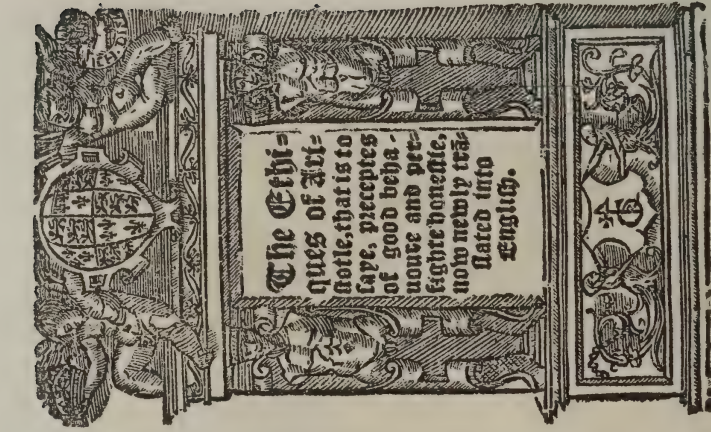 ICH DIE
The Ethi=
ques of Ari=
ſtotle, that is to
ſaye, preceptes
of good beha-
uoure and per=
fighte honeſtie,
now newly trā=
ſlated into
Engliſh.